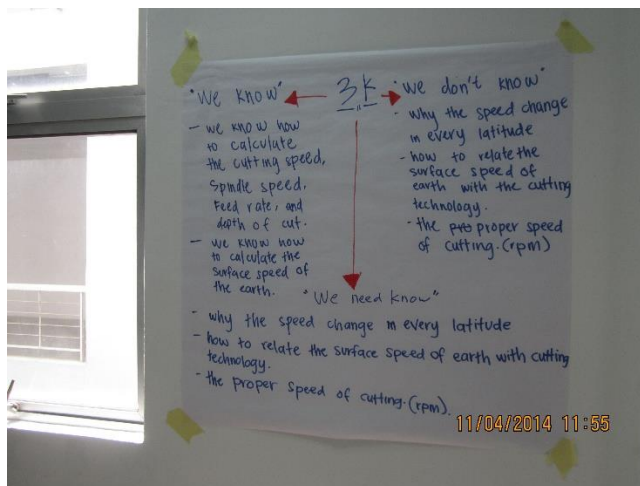 3k
"We know"
- we know how
to calculate
the cutting speed,
Spindle speed,
Feed rate, and
depth of cut.
- we know how
to calculate the
surface speed of
the earth.
"we don't know"
- why the speed change
in every latitude
- how to relate the
surface speed of
earth with the cutting
technology.
- the pro proper speed
of cutting. (rpm)
"We need know"
- why the speed change in every latitude
- how to relate the surface speed of earth with cutting
technology.
- the proper speed of cutting. (rpm).
11/04/2014 11:55